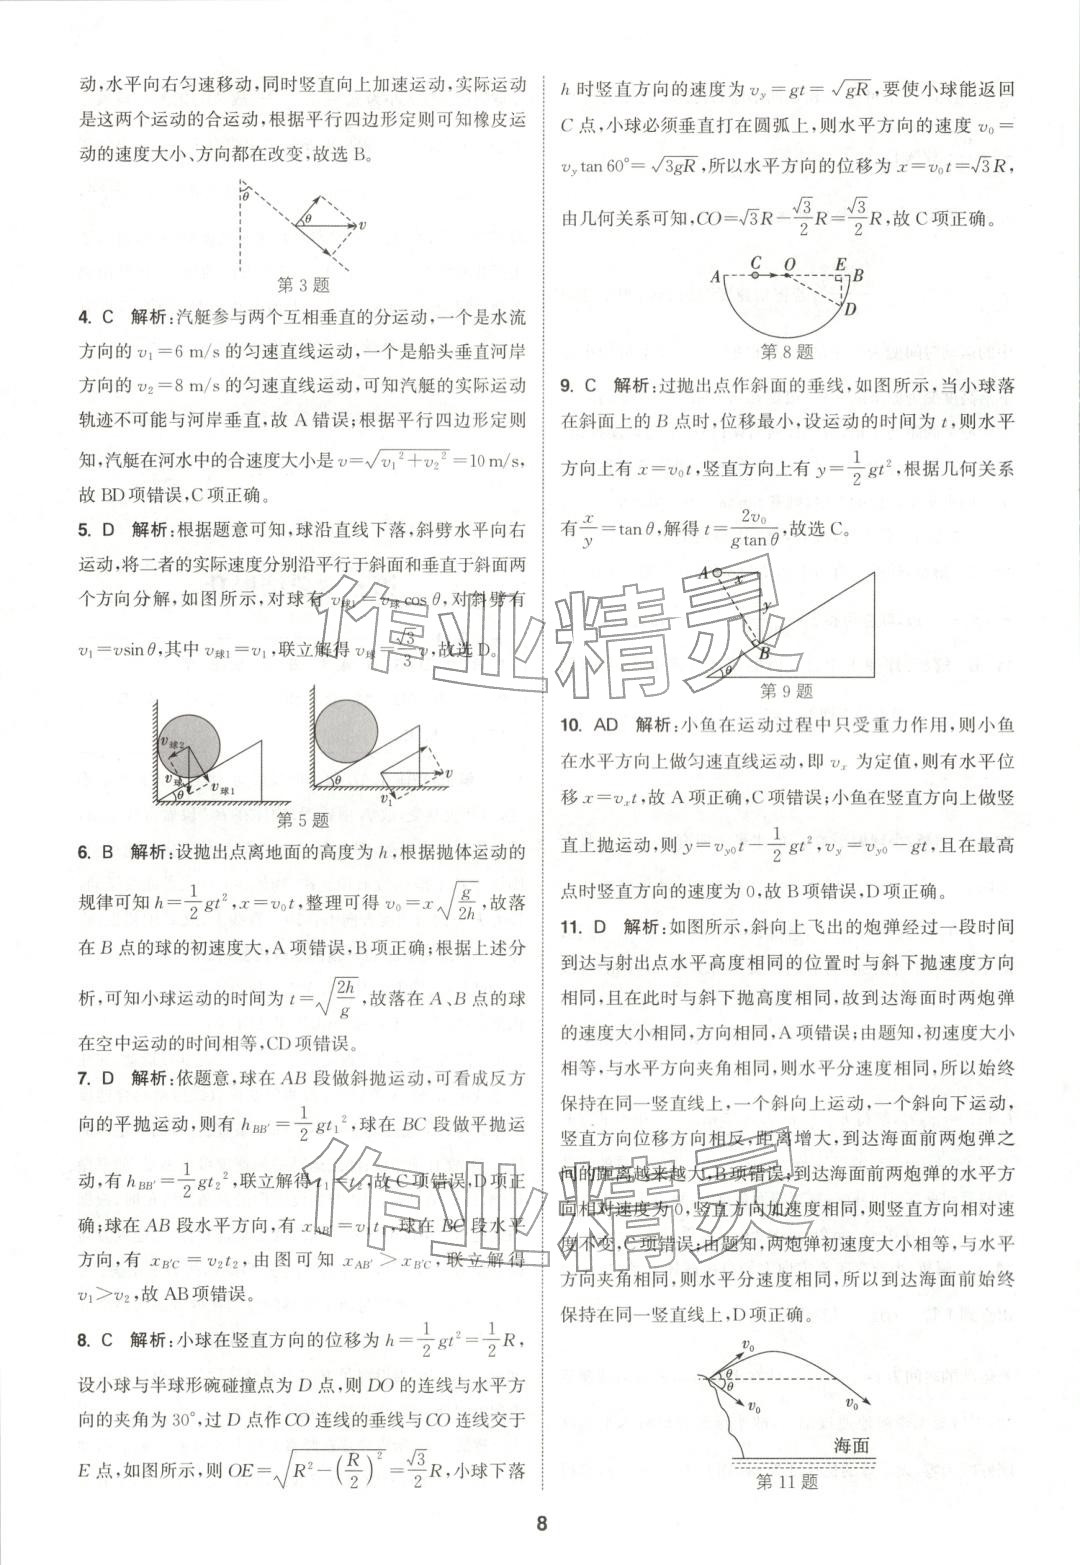 动,水平向右匀速移动,同时竖直向上加速运动,实际运动
是这两个运动的合运动,根据平行四边形定则可知橡皮运
动的速度大小、方向都在改变,故选 B。
θ
θ
v
第 3 题
4. C 解析:汽艇参与两个互相垂直的分运动,一个是水流
方向的 v₁=6 m/s 的匀速直线运动,一个是船头垂直河岸
方向的 v₂=8 m/s 的匀速直线运动,可知汽艇的实际运动
轨迹不可能与河岸垂直,故 A 错误;根据平行四边形定则
知,汽艇在河水中的合速度大小是 v=√(v₁²+v₂²)=10 m/s,
故 BD项错误,C 项正确。
5. D 解析:根据题意可知,球沿直线下落,斜劈水平向右
运动,将二者的实际速度分别沿平行于斜面和垂直于斜面两
个方向分解,如图所示,对球有 v球1=v球cosθ,对斜劈有
v₁=vsinθ,其中 v球1=v₁,联立解得 v球=√3/3 v,故选 D。
v球2
v球
v球1
θ
θ
v
v₁
第 5 题
6. B 解析:设抛出点离地面的高度为 h,根据抛体运动的
规律可知 h=1/2 gt²,x=v₀t,整理可得 v₀=x√(g/2h),故落
在 B 点的球的初速度大,A 项错误,B 项正确;根据上述分
析,可知小球运动的时间为 t=√(2h/g),故落在 A、B 点的球
在空中运动的时间相等,CD 项错误。
7. D 解析:依题意,球在 AB 段做斜抛运动,可看成反方
向的平抛运动,则有 h_BB′=1/2 gt₁²,球在 BC 段做平抛运
动,有 h_BB′=1/2 gt₂²,联立解得 t₁=t₂,故 C 项错误,D 项正
确;球在 AB 段水平方向,有 x_AB′=v₁t₁,球在 BC 段水平
方向,有 x_B′C=v₂t₂,由图可知 x_AB′>x_B′C,联立解得
v₁>v₂,故 AB项错误。
8. C 解析:小球在竖直方向的位移为 h=1/2 gt²=1/2 R,
设小球与半球形碗碰撞点为 D 点,则 DO 的连线与水平方
向的夹角为 30°,过 D 点作 CO 连线的垂线与 CO 连线交于
E 点,如图所示,则 OE=√(R²-(R/2)²)=√3/2 R,小球下落
h 时竖直方向的速度为 v_y=gt=√(gR),要使小球能返回
C 点,小球必须垂直打在圆弧上,则水平方向的速度 v₀=
v_y tan 60°=√(3gR),所以水平方向的位移为 x=v₀t=√3R,
由几何关系可知,CO=√3R-√3/2 R=√3/2 R,故 C 项正确。
A C O E B
D
第 8 题
9. C 解析:过抛出点作斜面的垂线,如图所示,当小球落
在斜面上的 B 点时,位移最小,设运动的时间为 t,则水平
方向上有 x=v₀t,竖直方向上有 y=1/2 gt²,根据几何关系
有 x/y=tanθ,解得 t=2v₀/(g tanθ),故选 C。
A x
y
B
θ
第 9 题
10. AD 解析:小鱼在运动过程中只受重力作用,则小鱼
在水平方向上做匀速直线运动,即 vₓ 为定值,则有水平位
移 x=vₓt,故 A 项正确,C 项错误;小鱼在竖直方向上做竖
直上抛运动,则 y=v_y0 t-1/2 gt²,v_y=v_y0-gt,且在最高
点时竖直方向的速度为 0,故 B 项错误,D 项正确。
11. D 解析:如图所示,斜向上飞出的炮弹经过一段时间
到达与射出点水平高度相同的位置时与斜下抛速度方向
相同,且在此时与斜下抛高度相同,故到达海面时两炮弹
的速度大小相同,方向相同,A 项错误;由题知,初速度大小
相等,与水平方向夹角相同,则水平分速度相同,所以始终
保持在同一竖直线上,一个斜向上运动,一个斜向下运动,
竖直方向位移方向相反,距离增大,到达海面前两炮弹之
间的距离越来越大,B 项错误;到达海面前两炮弹的水平方
向相对速度为 0,竖直方向加速度相同,则竖直方向相对速
度不变,C 项错误;由题知,两炮弹初速度大小相等,与水平
方向夹角相同,则水平分速度相同,所以到达海面前始终
保持在同一竖直线上,D 项正确。
v₀
θ
θ
v₀
v₀
海面
第 11 题
作业精灵
作业精灵
8